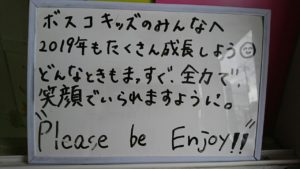 ボスコキッズのみんなへ
2019年もたくさん成長しよう
どんなときもまっすぐ、全力で、
笑顔でいられますように。
"Please be Enjoy!!"